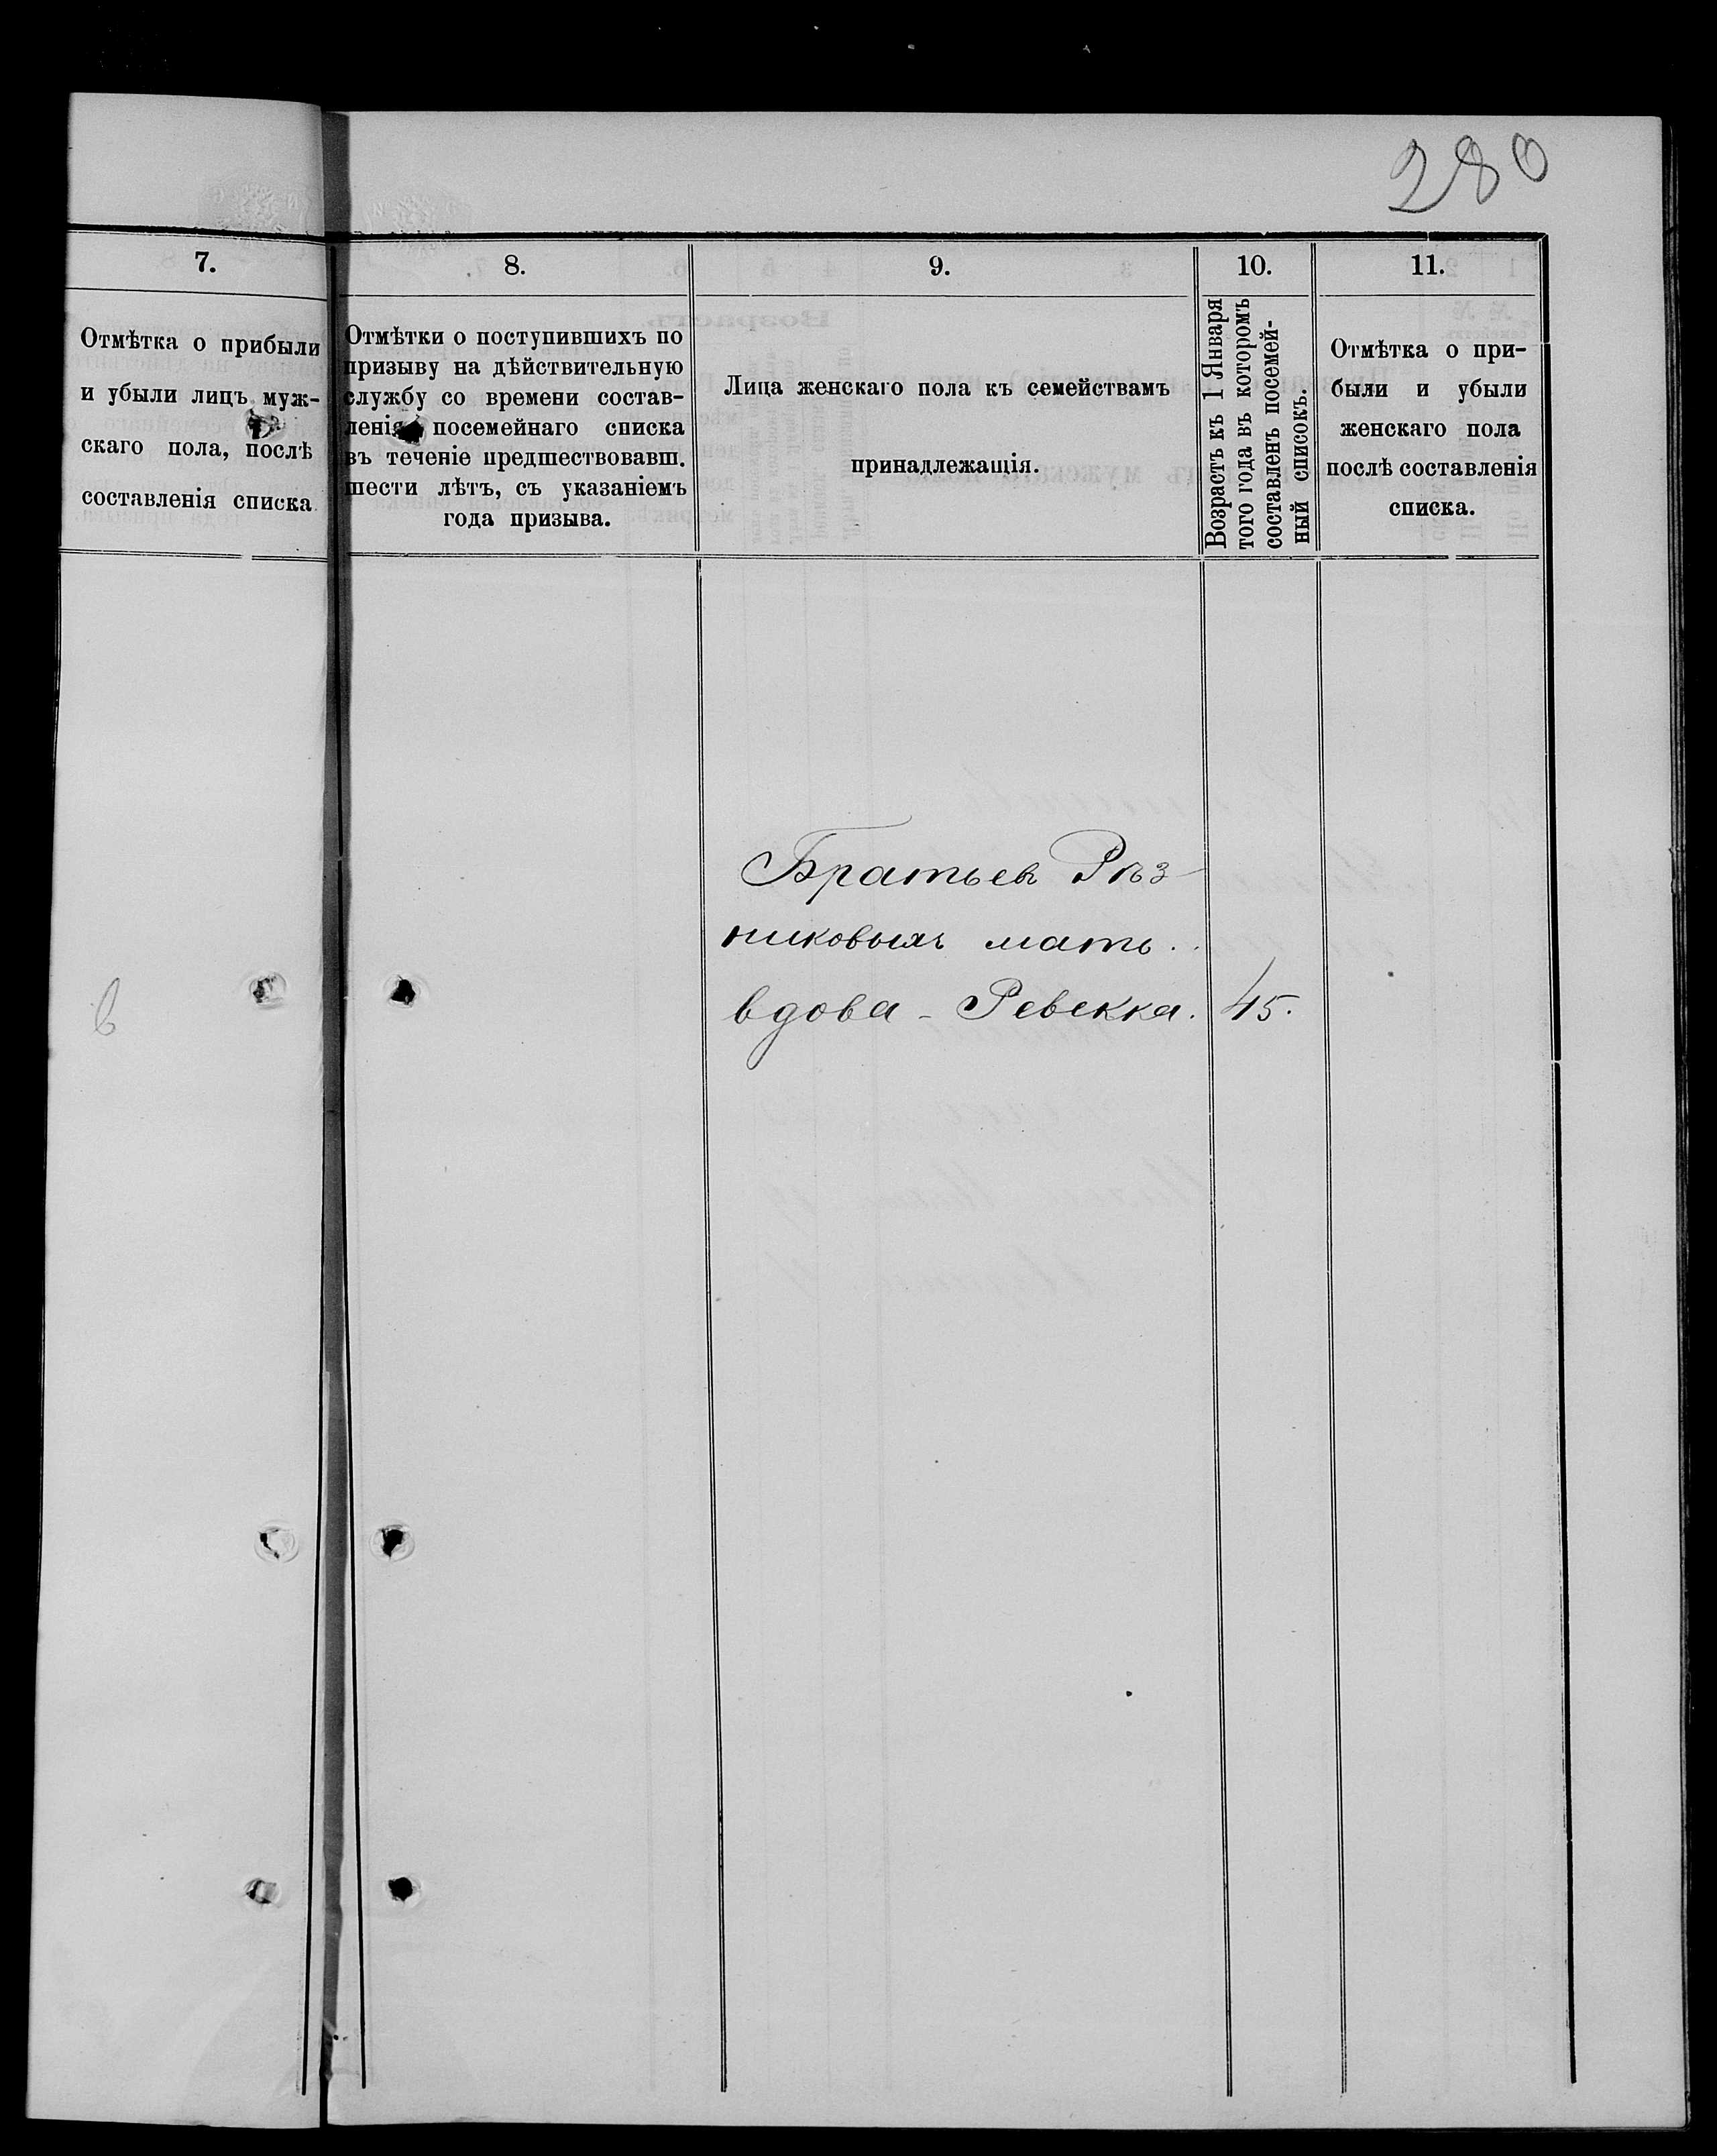 280
7.
Отмѣтка о прибыли
и убыли лицъ муж-
скаго пола, послѣ
составленія списка
8.
Отмѣтки о поступившихъ по
призыву на дѣйствительную
службу со времени состав-
ленія посемейнаго списка
въ теченіе предшествовавш.
шести лѣтъ, съ указаніемъ
года призыва.
9.
Лица женскаго пола къ семействамъ
принадлежащія.
10.
Возрастъ къ 1 Января
того года въ которомъ
составленъ посемей-
ный списокъ.
11.
Отмѣтка о при-
были и убыли
женскаго пола
послѣ составленія
списка.
Братьевъ Рѣз-
никовыхъ мать.
вдова - Ревекка. 45.
в